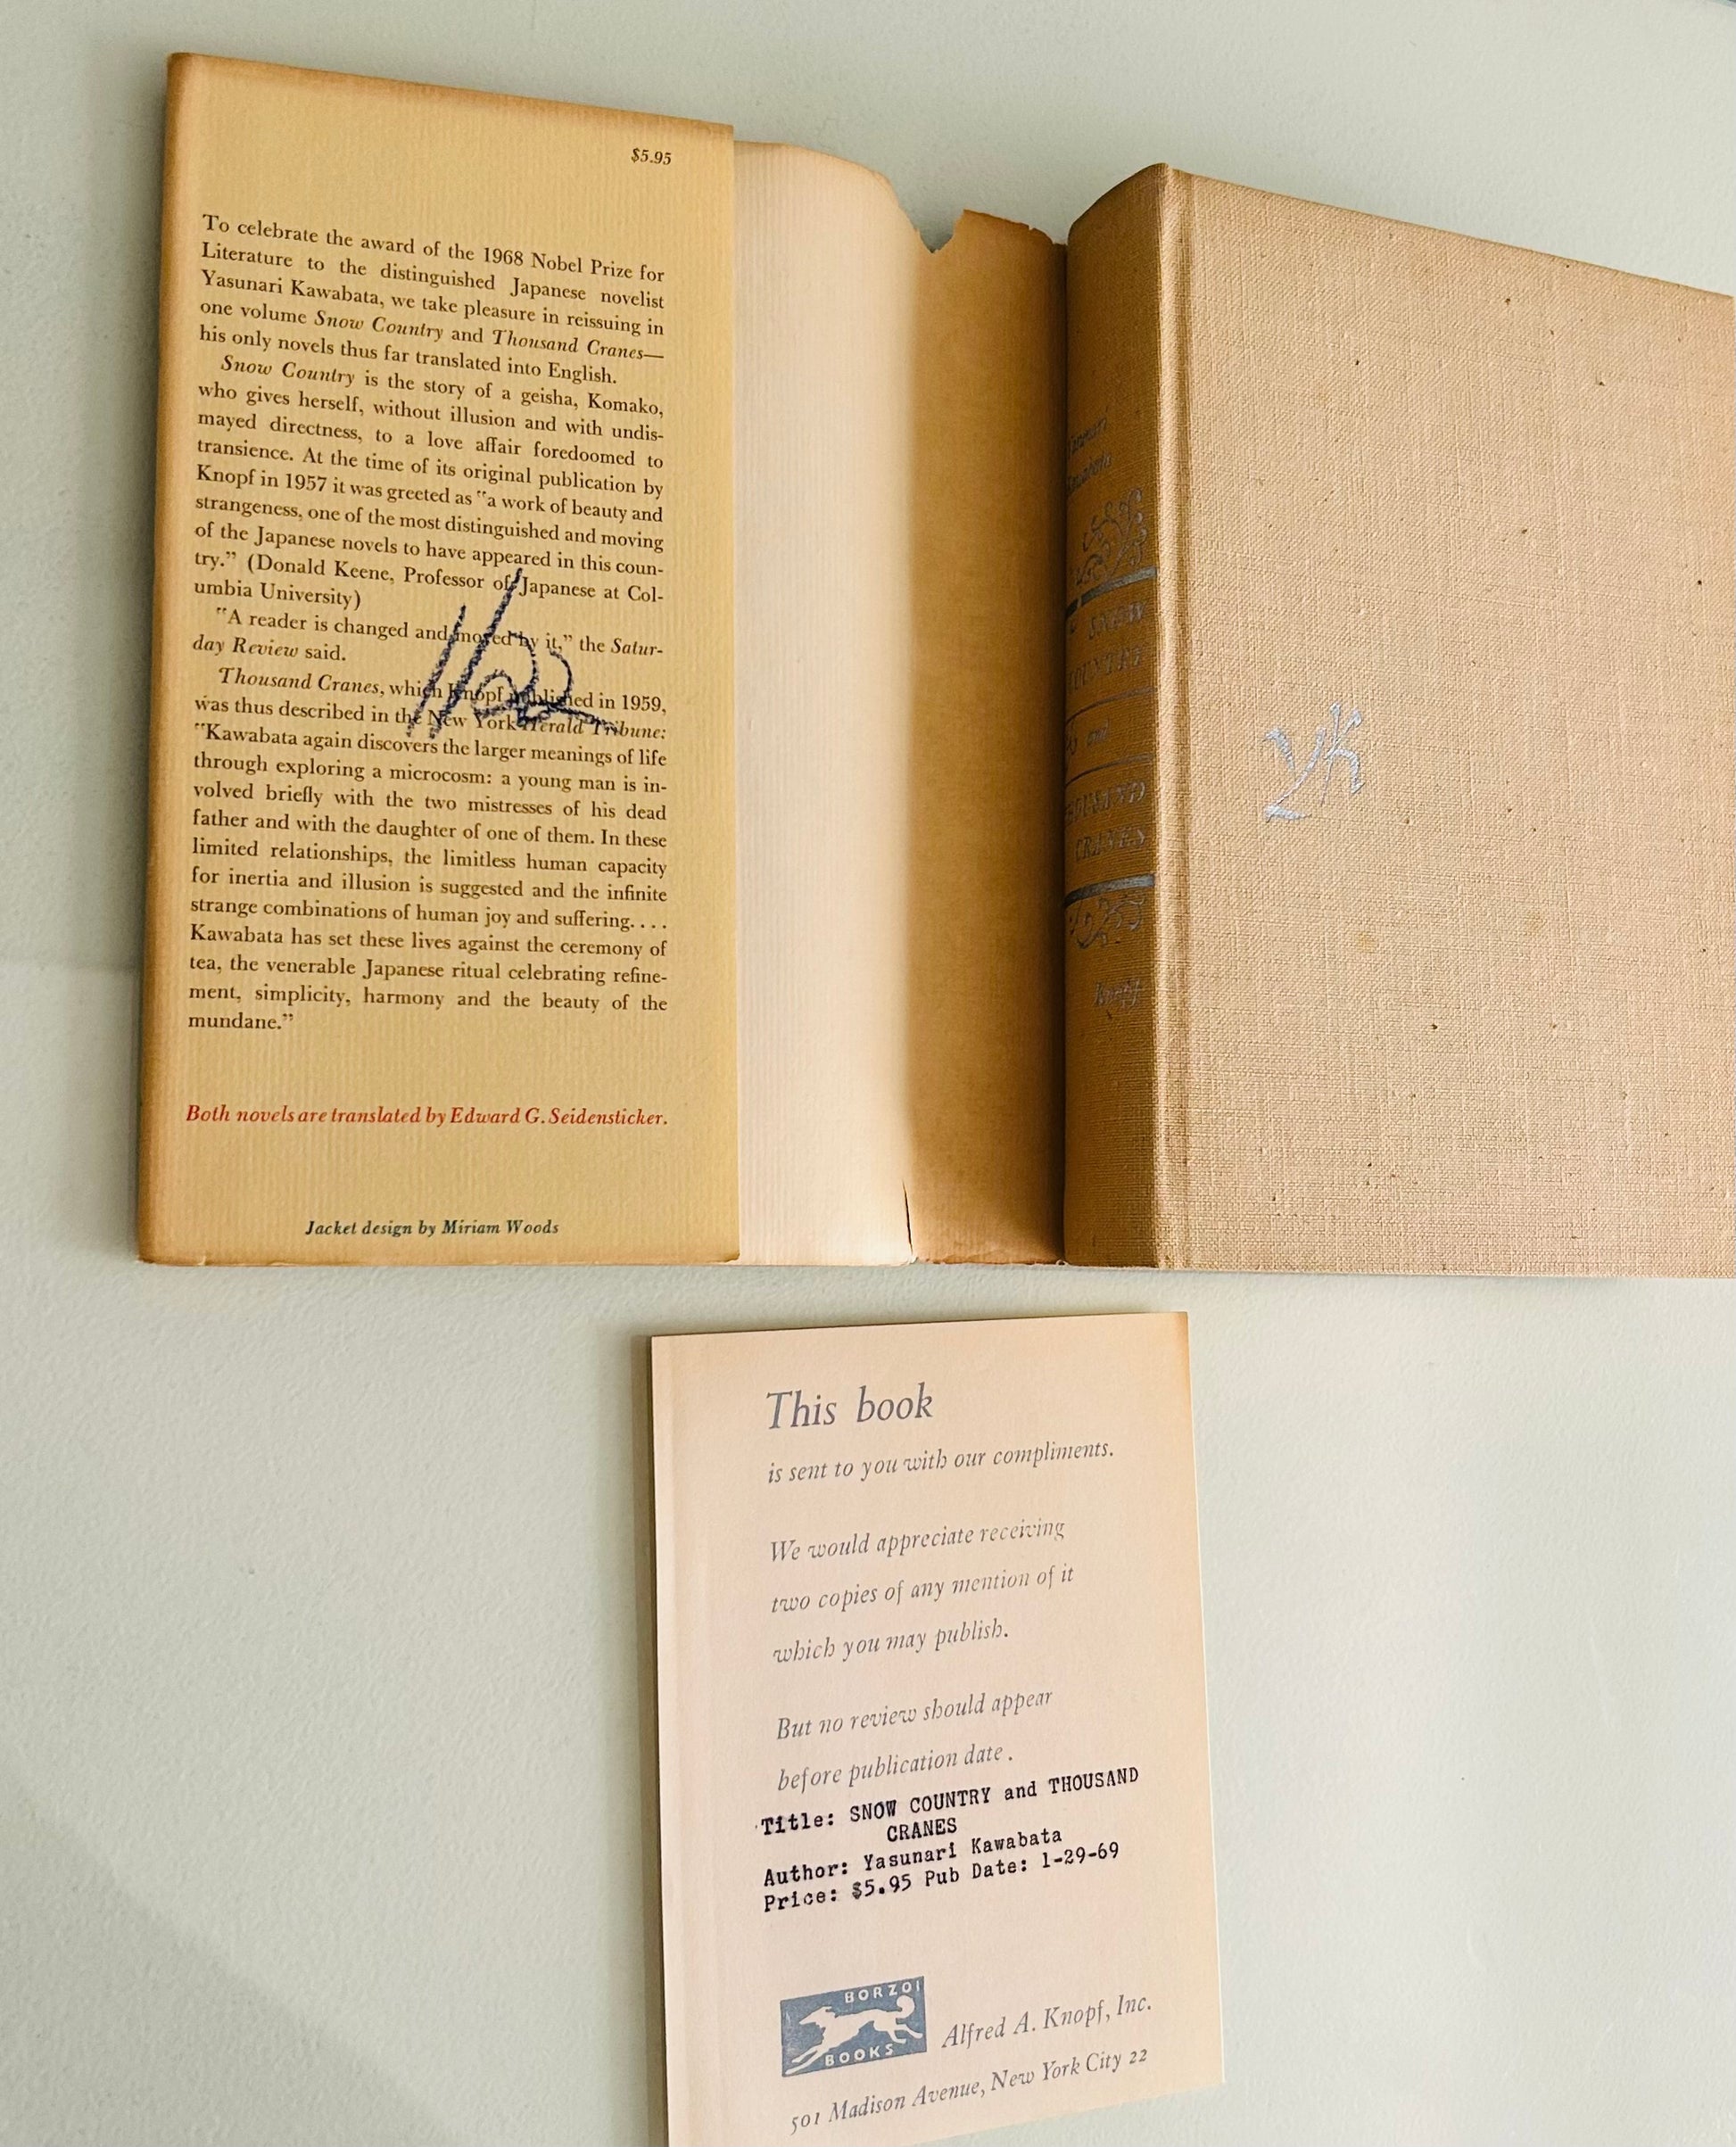 $5.95
To celebrate the award of the 1968 Nobel Prize for
Literature to the distinguished Japanese novelist
Yasunari Kawabata, we take pleasure in reissuing in
one volume Snow Country and Thousand Cranes—
his only novels thus far translated into English.
Snow Country is the story of a geisha, Komako,
who gives herself, without illusion and with undis-
mayed directness, to a love affair foredoomed to
transience. At the time of its original publication by
Knopf in 1957 it was greeted as "a work of beauty and
strangeness, one of the most distinguished and moving
of the Japanese novels to have appeared in this coun-
try." (Donald Keene, Professor of Japanese at Col-
umbia University)
"A reader is changed and moved by it," the Satur-
day Review said.
Thousand Cranes, which Knopf published in 1959,
was thus described in the New York Herald Tribune:
"Kawabata again discovers the larger meanings of life
through exploring a microcosm: a young man is in-
volved briefly with the two mistresses of his dead
father and with the daughter of one of them. In these
limited relationships, the limitless human capacity
for inertia and illusion is suggested and the infinite
strange combinations of human joy and suffering. . . .
Kawabata has set these lives against the ceremony of
tea, the venerable Japanese ritual celebrating refine-
ment, simplicity, harmony and the beauty of the
mundane."
Both novels are translated by Edward G. Seidensticker.
Jacket design by Miriam Woods
SNOW
COUNTRY
and
THOUSAND
CRANES
Knopf
YK
This book
is sent to you with our compliments.
We would appreciate receiving
two copies of any mention of it
which you may publish.
But no review should appear
before publication date.
Title: SNOW COUNTRY and THOUSAND
CRANES
Author: Yasunari Kawabata
Price: $5.95 Pub Date: 1-29-69
BORZOI
BOOKS
Alfred A. Knopf, Inc.
501 Madison Avenue, New York City 22